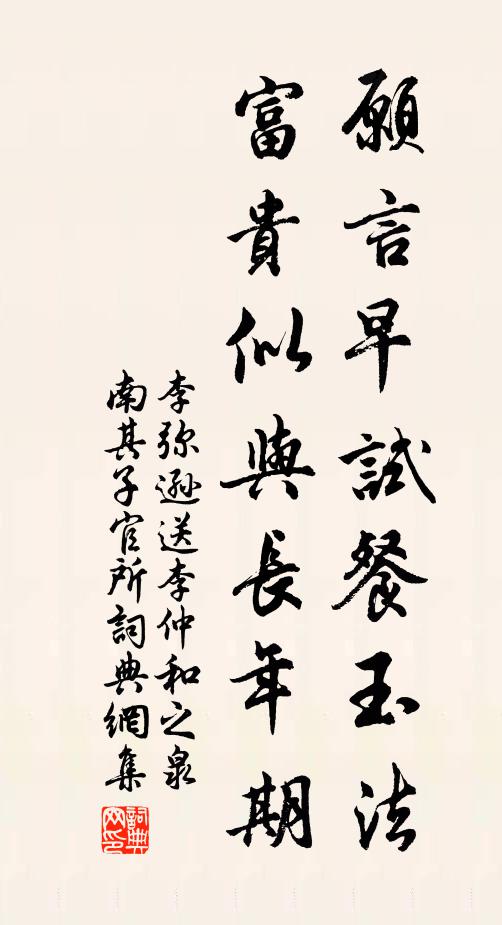 願言早試餐玉法
富貴似與長年期
李弥遜送李仲和之泉
南其子官所詞典網集
詞典
网印